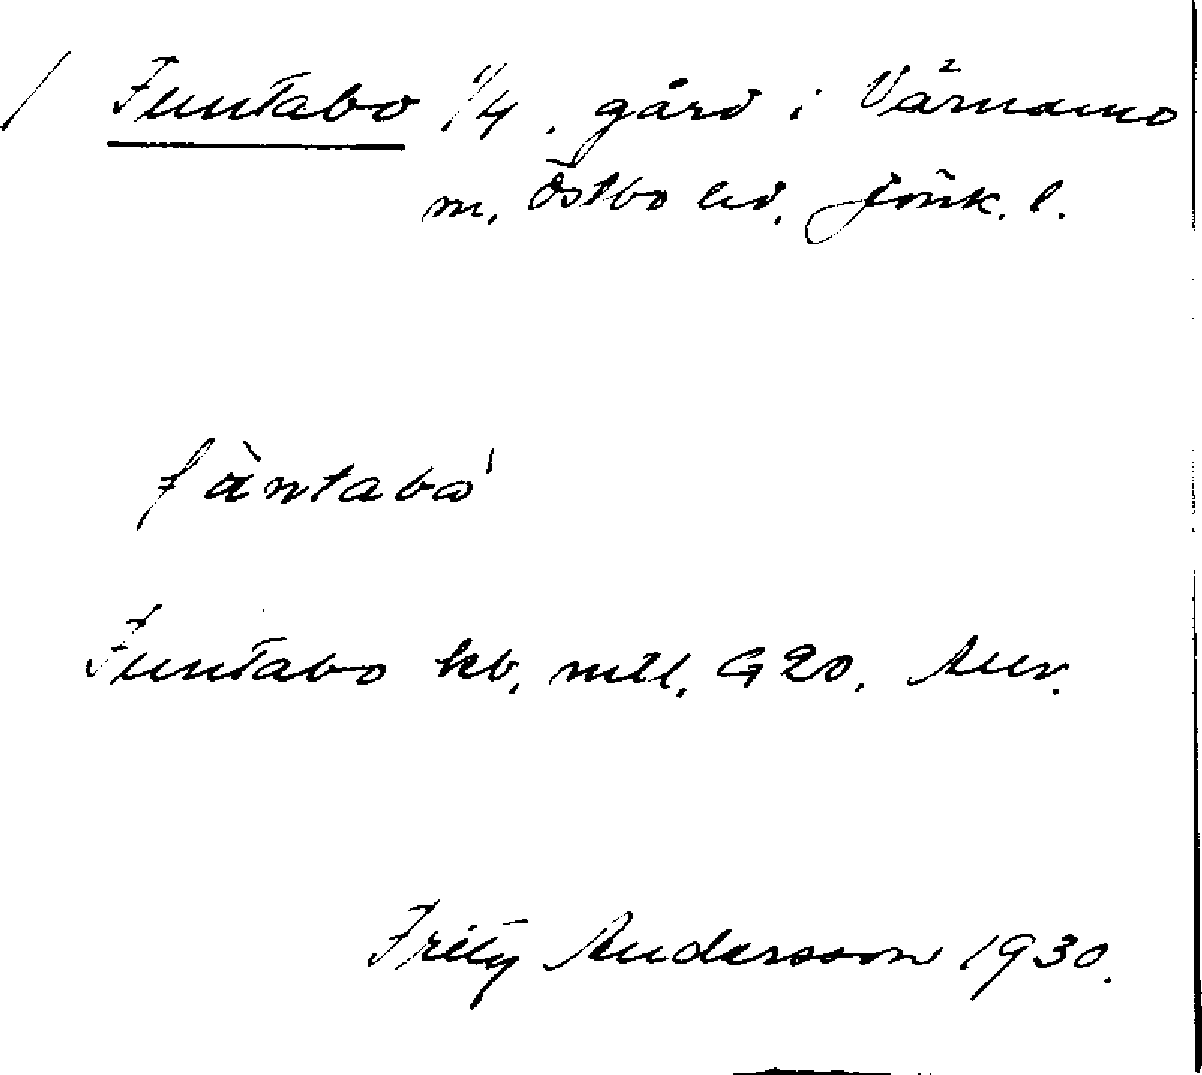 / Funtabo 1/4. gård i Värnamo
m. Östbo hd. Jönk. l.
fàntabó
Funtabo kb, mtl, G 20.
Fritz Andersson 1930.